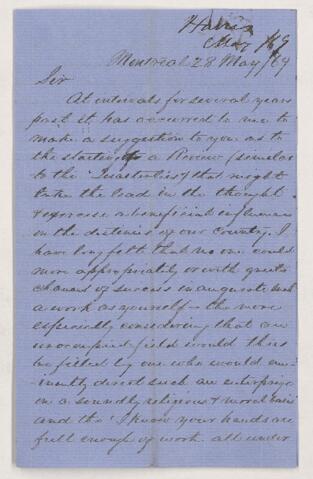 Harris
May /69
Montreal 28 May/69
Sir
At intervals for several years
past it has occurred to me to
make a suggestion to you as to
the starting of a Review (similar
to the 'Quarterlies') that might
take the lead in the thought
& exercise a beneficial influence
in the destinies of our Country. I
have long felt that no one could
more appropriately or with greater
chances of success inaugurate such
a work as yourself – the more
especially considering that an
unoccupied field would thus
be filled by one who would em-
inently direct such an enterprize
on a soundly religious & moral basis
and tho' I know your hands are
full enough of work all under